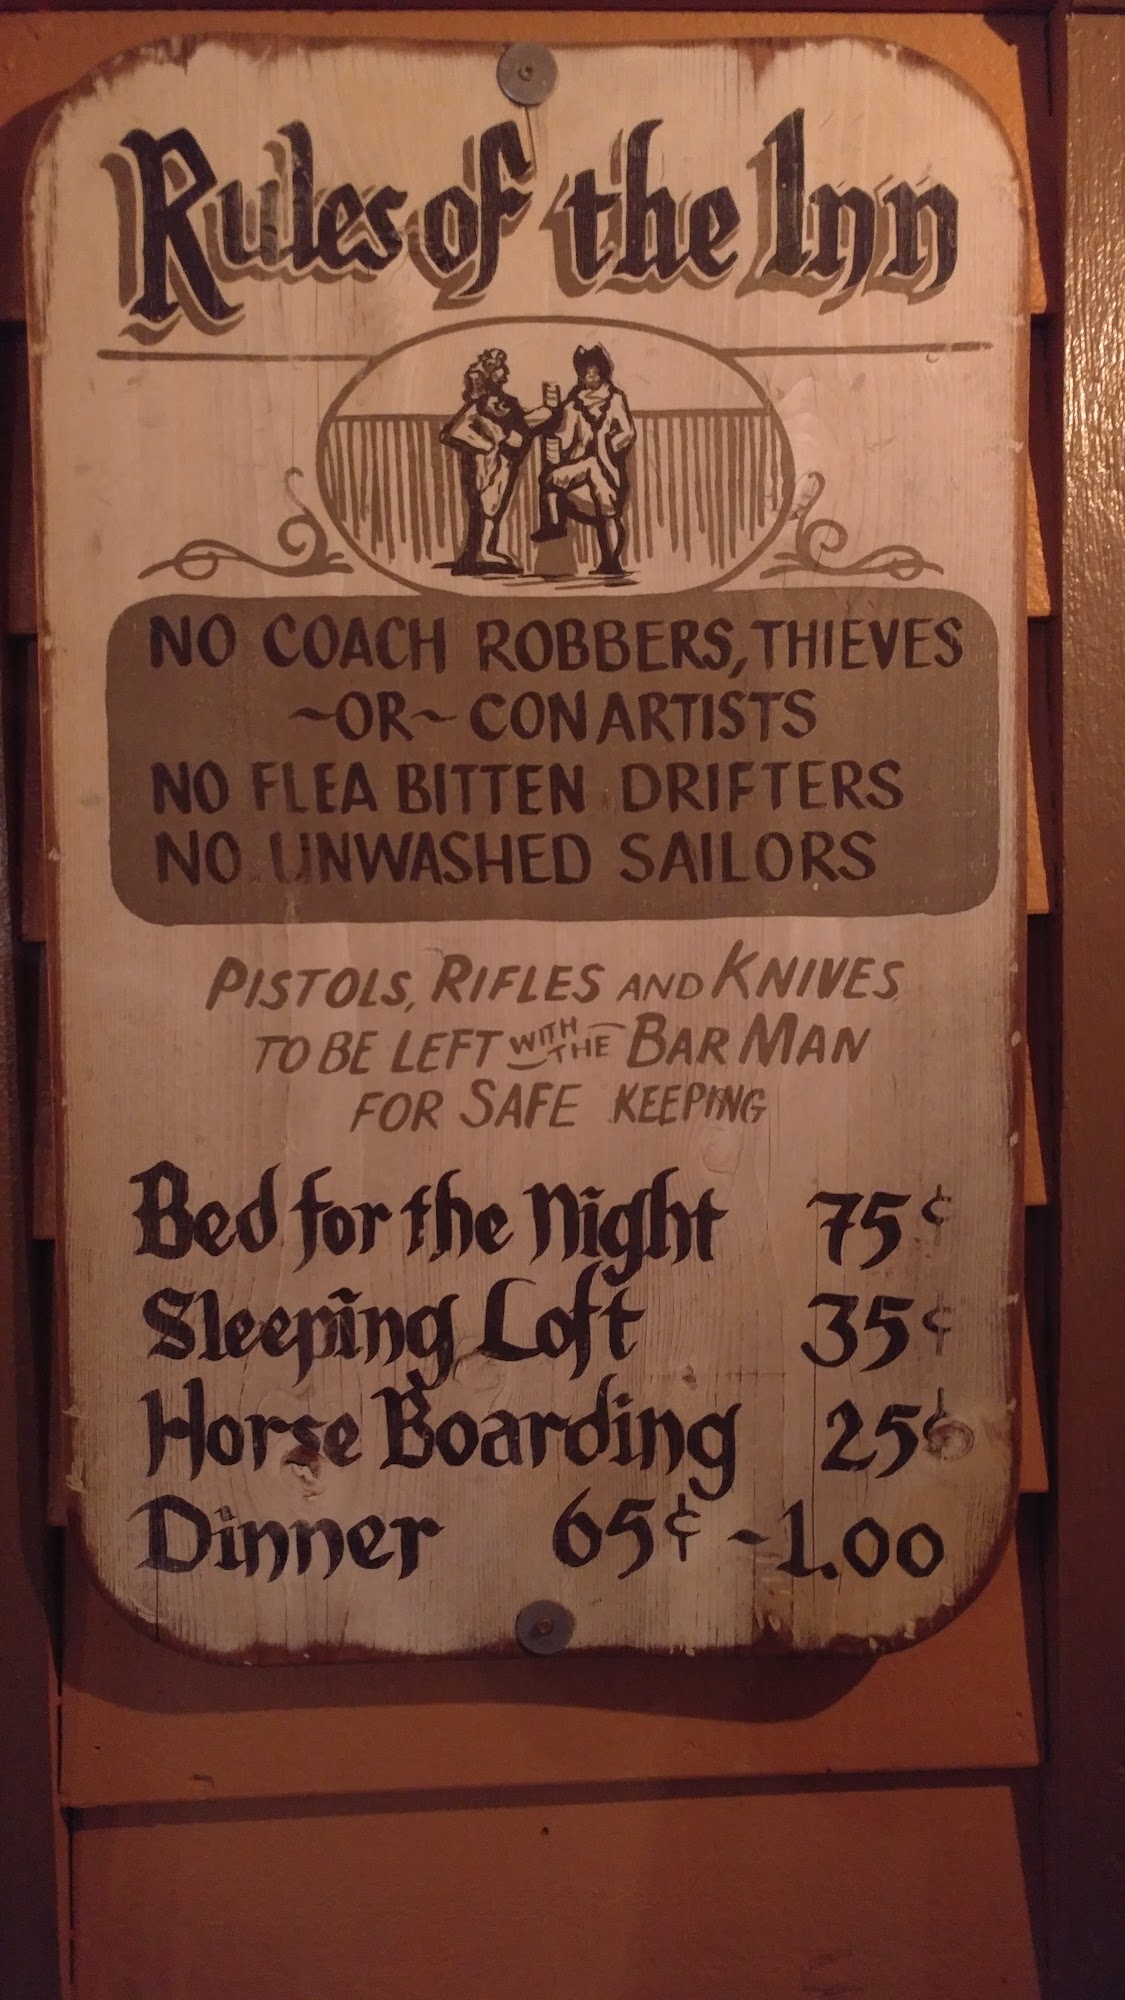 Rules of the Inn
NO COACH ROBBERS, THIEVES
~OR~ CON ARTISTS
NO FLEA BITTEN DRIFTERS
NO UNWASHED SAILORS
PISTOLS, RIFLES AND KNIVES
TO BE LEFT WITH THE BAR MAN
FOR SAFE KEEPING
Bed for the Night 75¢
Sleeping Loft 35¢
Horse Boarding 25¢
Dinner 65¢ - 1.00